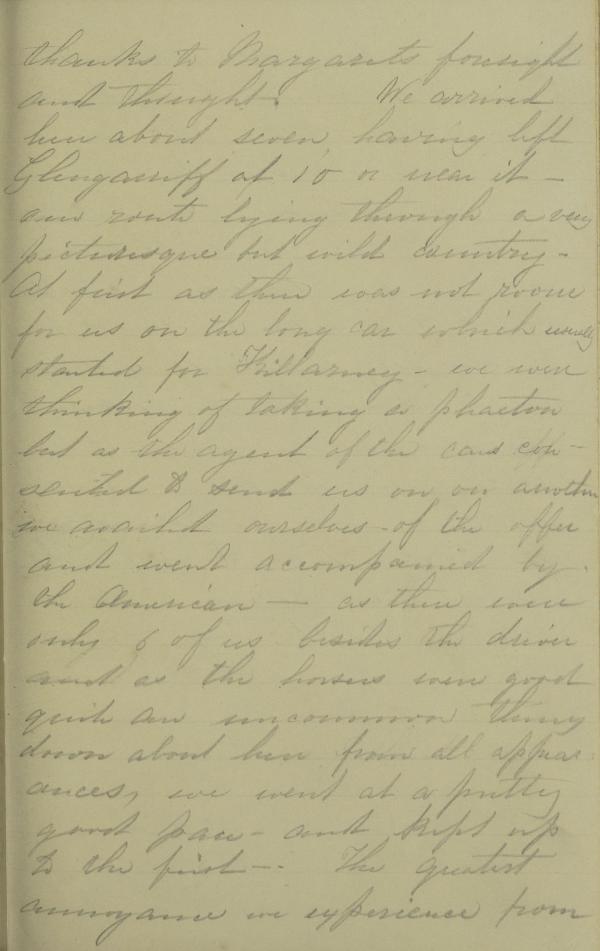 thanks to Margarets foresight
and thought. We arrived
here about seven, having left
Glengarriff at 10 or near it -
our route lying through a very
picturesque but wild country -
At first as there was not room
for us on the long car which usually
started for Killarney - we were
thinking of taking a phaeton
but as the agent of the cars con-
sented to send us on on another
we availed ourselves of the offer
and went accompanied by
the American — as there were
only 6 of us besides the driver
and as the horses were good
quite an uncommon thing
down about here from all appear-
ances, we went at a pretty
good pace - and kept up
to the first —. The greatest
annoyance we experience from